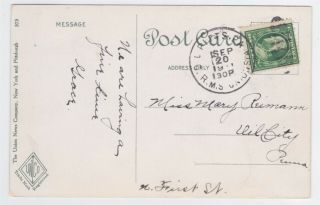 Post Card
MESSAGE
ADDRESS ONLY
PITTS
SEP
20
130P
R.M.S.
We are having a
fine time
Grace
Miss Mary Reimann
Oil City
Penna
W. First St.
The Union News Company, New York and Pittsburgh